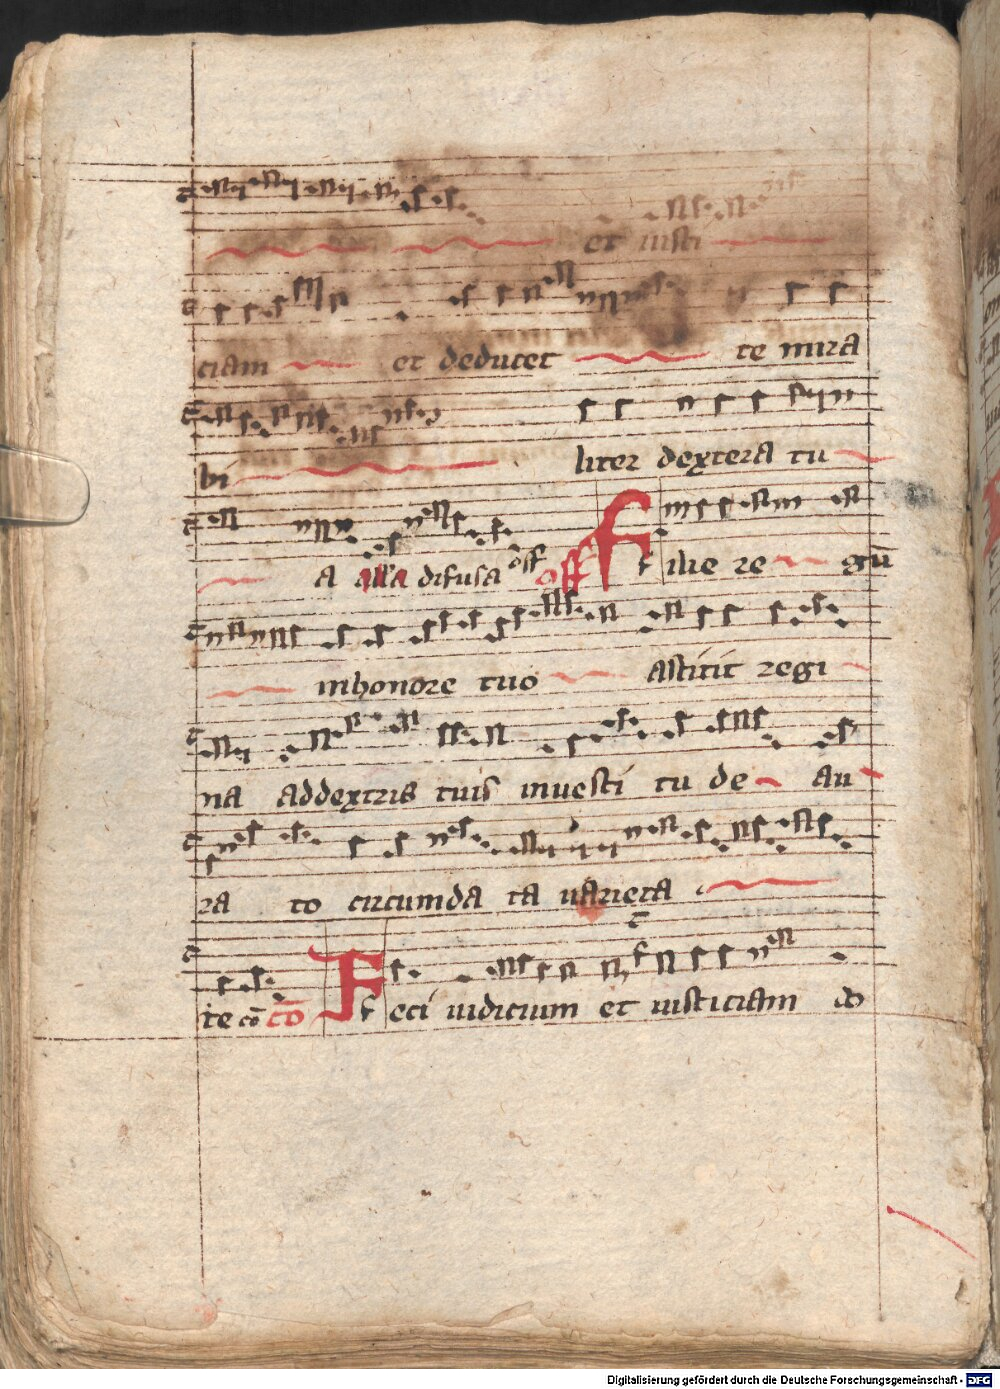 et iusti
ciam et deducet te mira
bi liter dextera tu
a all'a difusa off off F f ilie re gū
in honore tuo astitit regi
na ad dextris tuis in uesti tu de au
ra to circumda ta uarieta
te cō cō F f eci iudicium et iusticiam do
Digitalisierung gefördert durch die Deutsche Forschungsgemeinschaft - DFG